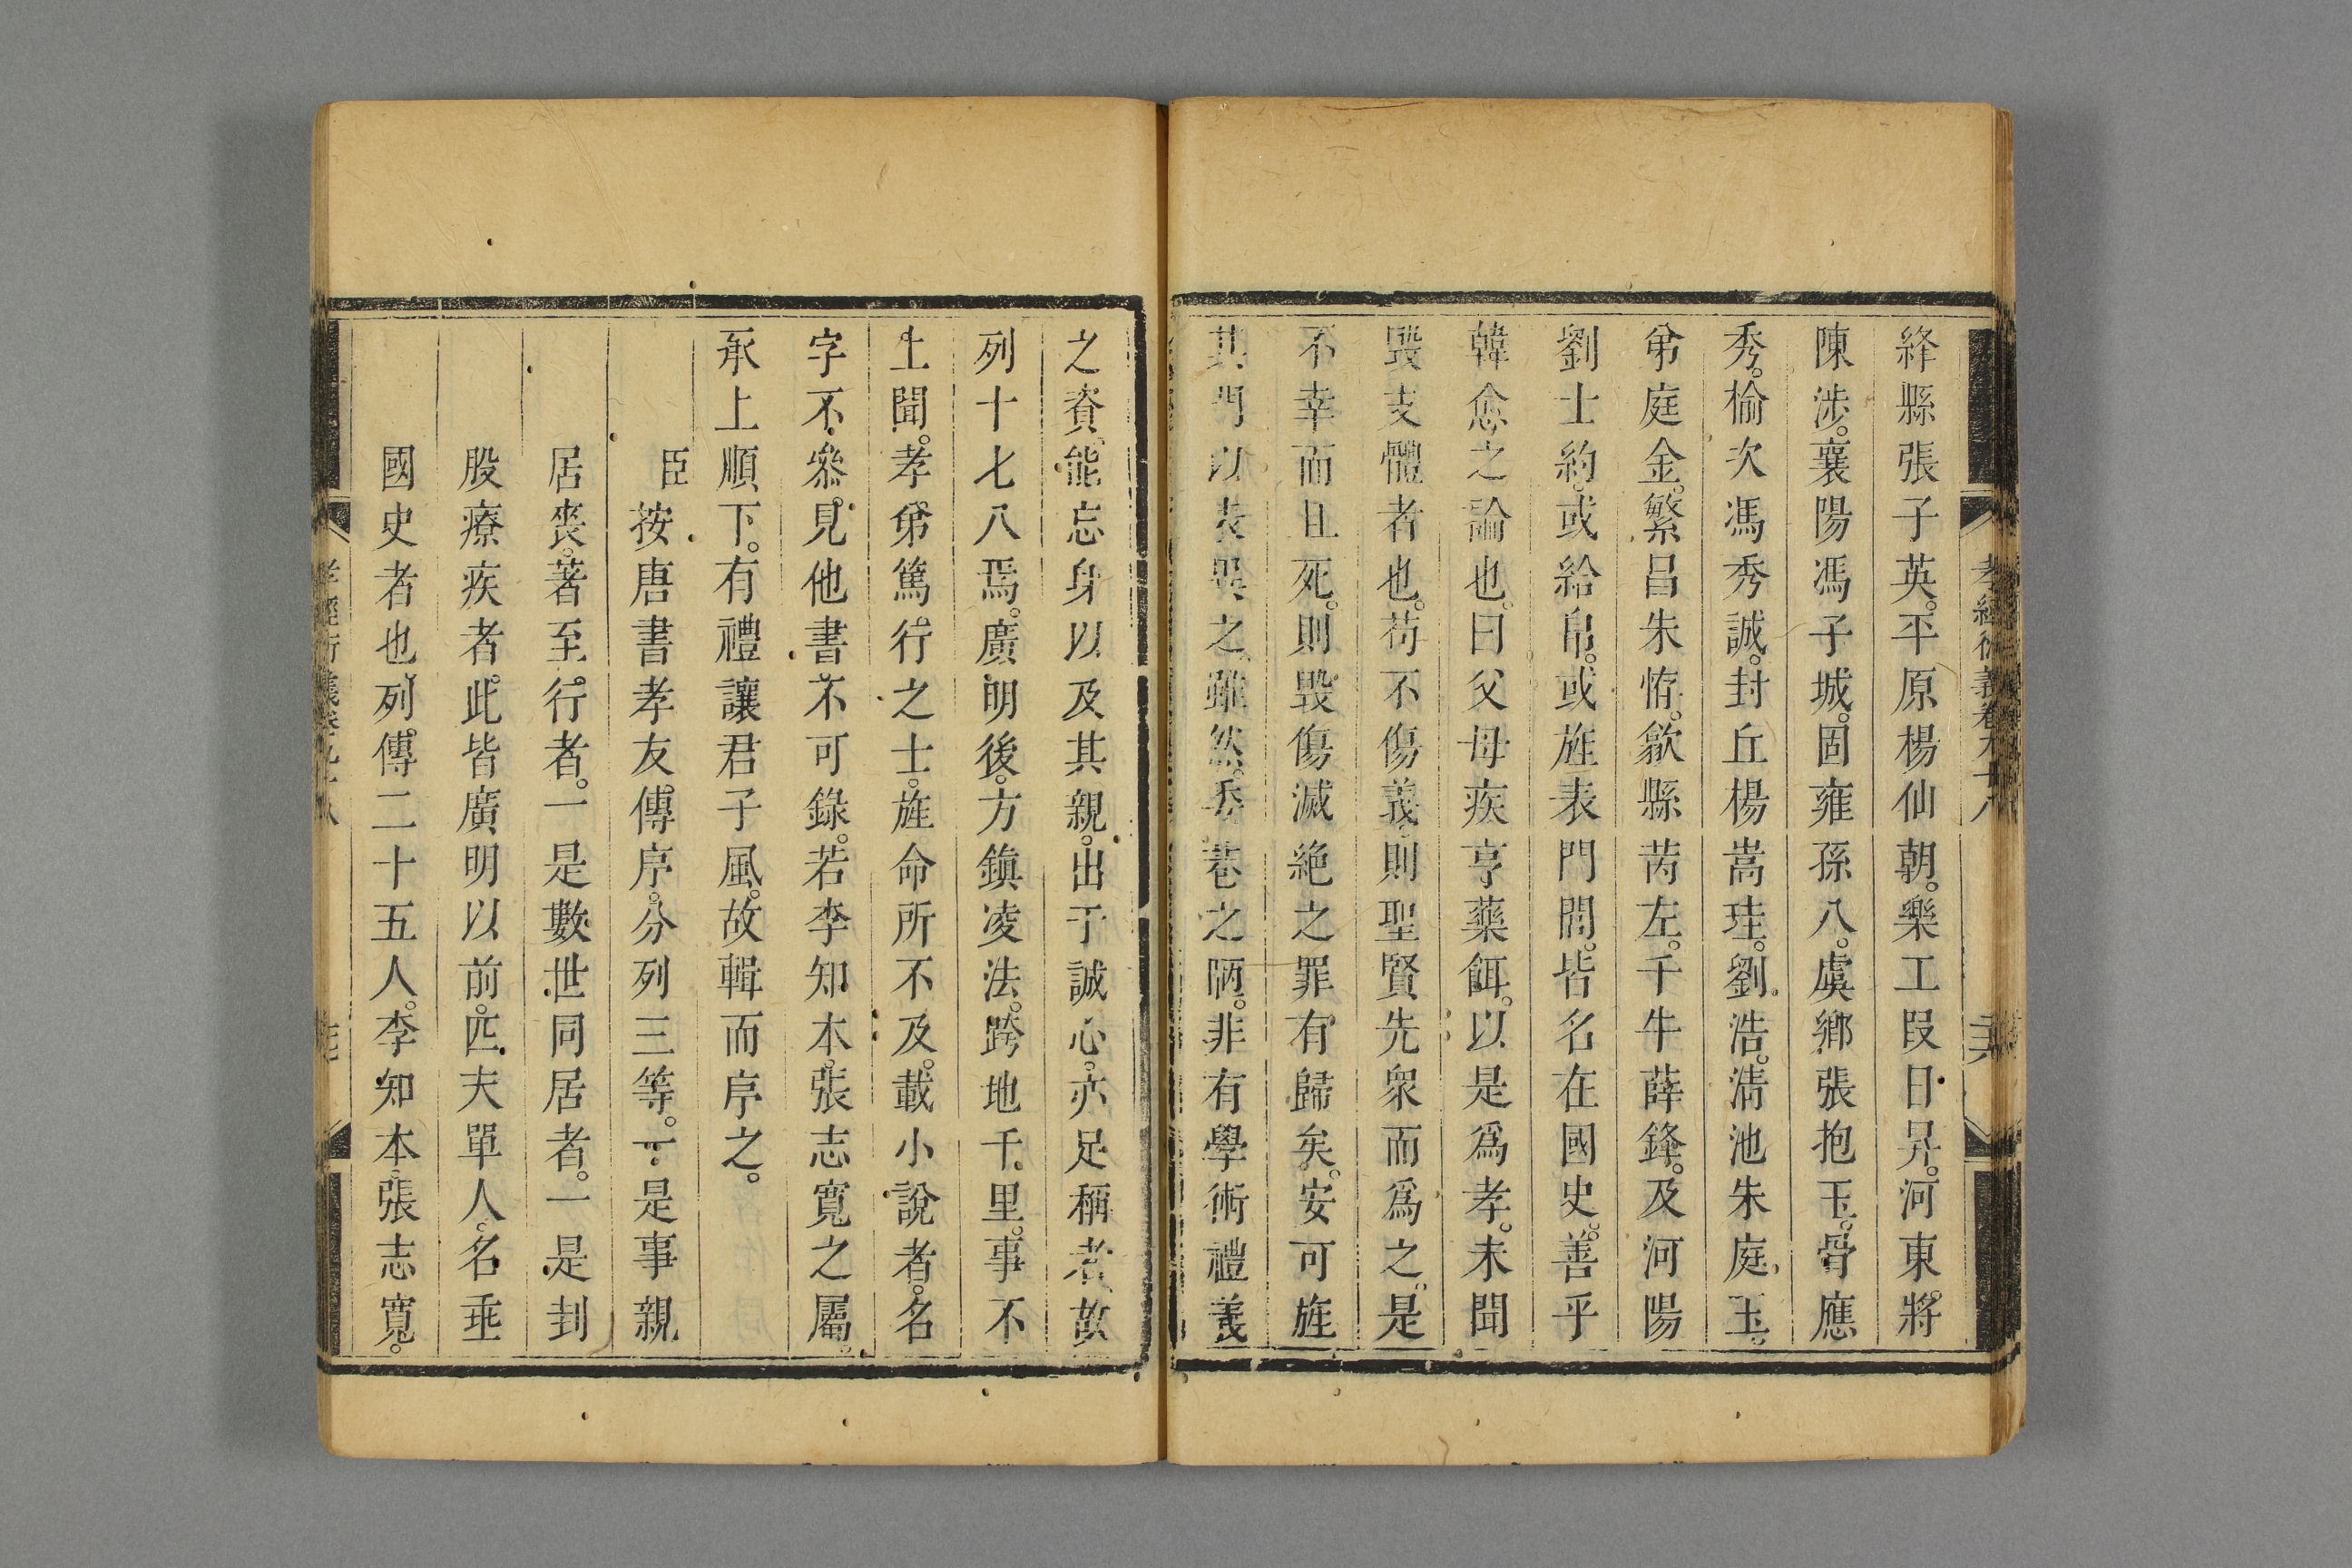 孝經衍義卷九十八
絳縣張子英。平原楊仙朝。樂工段日昇。河東將
陳涉。襄陽馮子城。固雍孫八。虞鄉張抱玉。骨應
秀。榆次馮秀誠。封丘楊嵩珪。劉浩。清池朱庭玉。
弟庭金。繁昌朱恮。歙縣芮左。千牛薛鋒。及河陽
劉士約。或給帛。或旌表門閭。皆名在國史。善乎
韓愈之論也。曰父母疾亨藥餌。以是爲孝。未聞
毀支體者也。苟不傷義。則聖賢先衆而爲之。是
不幸而且死。則毀傷滅絕之罪有歸矣。安可旌
其門以表異之。雖然。委巷之陋。非有學術禮義
之資。能忘身以及其親。出于誠心。亦足稱者。故
列十七八焉。廣明後。方鎮凌法。跨地千里。事不
上聞。孝弟篤行之士。旌命所不及。載小說者。名
字不參見他書。不可錄。若李知本。張志寬之屬。
承上順下。有禮讓君子風。故輯而序之。
臣按唐書孝友傳序。分列三等。一是事親
居喪。著至行者。一是數世同居者。一是刲
股療疾者。此皆廣明以前。匹夫單人。名垂
國史者也。列傳二十五人。李知本。張志寬。
孝經衍義卷九十八